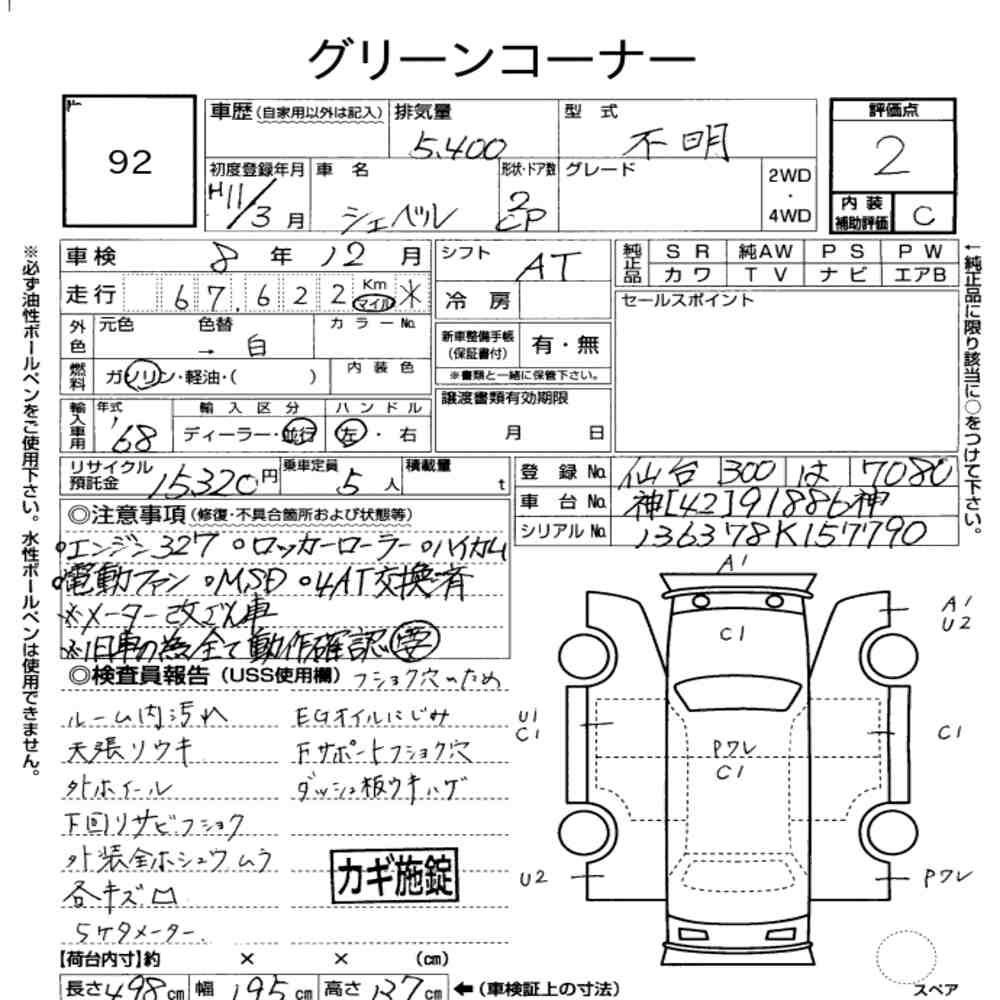 グリーンコーナー
92
車歴(自家用以外は記入) 排気量 5,400 型式 不明 評価点 2
初度登録年月 H11/3月 車名 シェベル 形状・ドア数 2 CP グレード 2WD・4WD 内装補助評価 C
車検 8年12月 シフト AT 純正品 SR 純AW PS PW
カワ TV ナビ エアB
走行 67,622 Km マイル ※ 冷房 セールスポイント
外色 元色 色替 → 白 カラーNo. 新車整備手帳(保証書付) 有・無
※書類と一緒に保管下さい。
燃料 ガソリン・軽油・( ) 内装色 譲渡書類有効期限 月 日
輸入車用 年式 '68 輸入区分 ディーラー・並行 ハンドル 左・右
リサイクル預託金 15320円 乗車定員 5人 積載量 t 登録No. 仙台 300 は 7080
車台No. 神[42]91886神
シリアルNo. 136378K157790
◎注意事項(修復・不具合箇所および状態等)
・エンジン327 ・ロッカーローラー ・ハイカム
・電動ファン ・MSD ・4AT交換済
※メーター改ざん車
※旧車の為全て動作確認要
◎検査員報告(USS使用欄) フショク穴
ルーム内汚れ EGオイルにじみ
天張リウキ Fサポートフショク穴
外ホイール ダッシュ板ウキ
下回りサビフショク
外装全ホシュウムラ
各キズ凹
5ケタメーター.
カギ施錠
【荷台内寸】約 × × (cm)
長さ498cm 幅195cm 高さ137cm ←(車検証上の寸法)
※必ず油性ボールペンをご使用下さい。水性ボールペンは使用できません。
←純正品に限り該当に○をつけて下さい。
A1
C1
A1
U2
U1
C1
Pワレ
C1
C1
U2
Pワレ
スペア